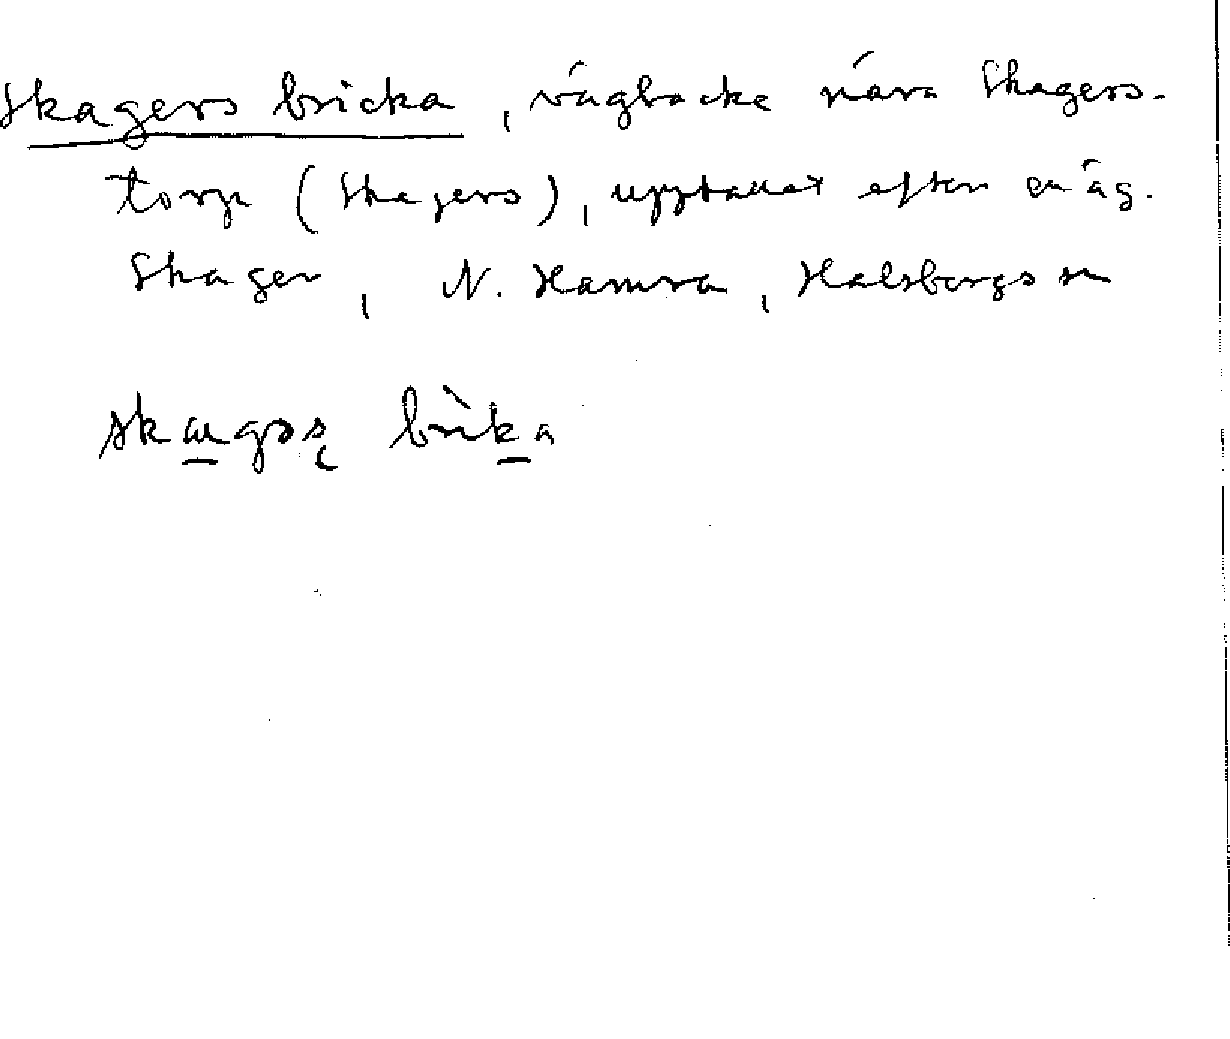 Skagers bricka, vägbacke nära Skagers-
torp (Skagers), uppkallat efter en äg.
Skager, N. Hamra, Halsbergs sn
skagəs brìka